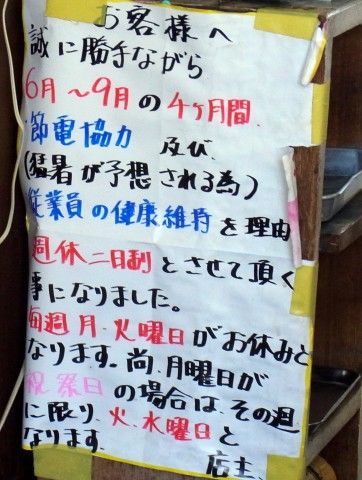 お客様へ
誠に勝手ながら
6月～9月の4ヶ月間、
節電協力 及び、
(猛暑が予想される為)
従業員の健康維持を理由
週休二日制とさせて頂く
事になりました。
毎週月・火曜日がお休みと
なります。尚、月曜日が
祝祭日の場合は、その週
に限り、火、水曜日と
なります。 店主、